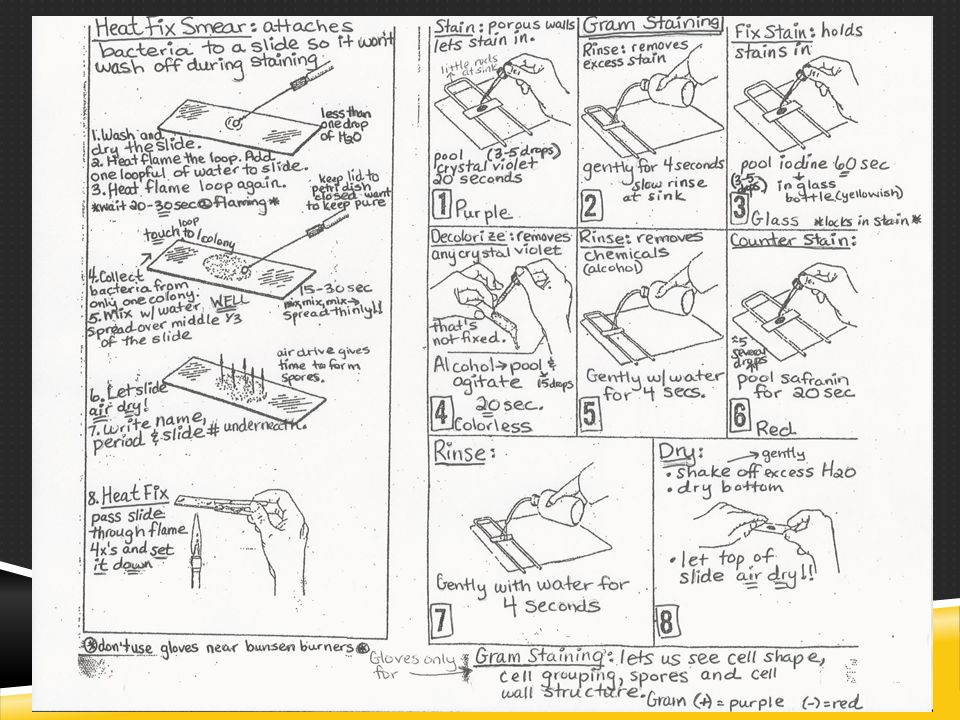 Heat Fix Smear: attaches
bacteria to a slide so it won't
wash off during staining.
less than
one drop
of H2O
1. Wash and
dry the slide.
2. Heat flame the loop. Add
one loopful of water to slide.
3. Heat flame loop again.
*wait 20-30 sec flaming*
keep lid to
petri dish
closed - want
to keep pure
loop
touch to 1 colony
4. Collect
bacteria from
only one colony.
5. Mix w/ water WELL
spread over middle 1/3
of the slide
15-30 sec
mix, mix, mix →
spread thinly!!
air drive gives
time to form
spores.
6. Let slide
air dry!
7. Write name,
period & slide # underneath.
8. Heat Fix
pass slide
through flame
4x's and set
it down
*don't use gloves near bunsen burners*
Gloves only
for
Gram Staining
Stain: porous walls
lets stain in.
little rocks
at sink
pool (3-5 drops)
crystal violet
20 seconds
1 Purple
Rinse: removes
excess stain
gently for 4 seconds
slow rinse
at sink
2
Fix Stain: holds
stains in
pool iodine 60 sec
(3-5 drops) in glass
bottle (yellowish)
3 Glass *locks in stain*
Decolorize: removes
any crystal violet
that's
not fixed.
Alcohol → pool &
agitate 15 drops
20 sec.
4 Colorless
Rinse: removes
chemicals
(alcohol)
Gently w/ water
for 4 secs.
5
Counter Stain:
≈5
drops
pool safranin
for 20 sec
6 Red
Rinse:
Gently with water for
4 seconds
7
Dry: → gently
• shake off excess H2O
• dry bottom
• let top of
slide air dry!!
8
Gram Staining: lets us see cell shape,
cell grouping, spores and cell
wall structure.
Gram (+) = purple (-) = red